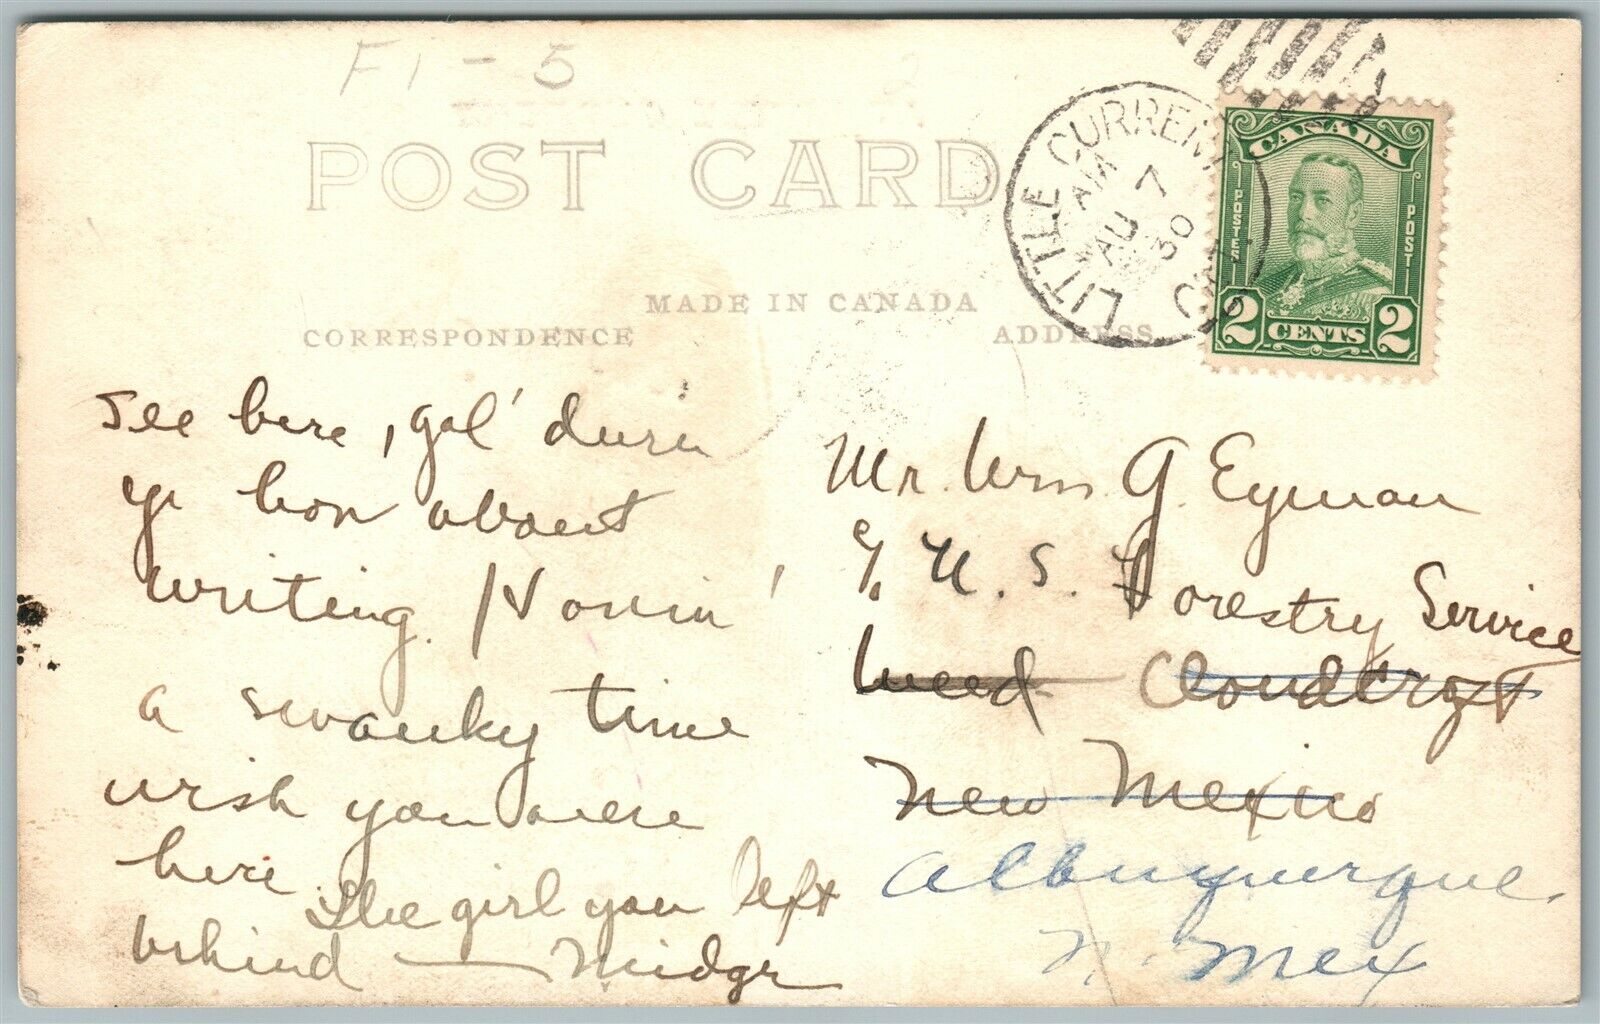 F1-5
POST CARD
MADE IN CANADA
CORRESPONDENCE
ADDRESS
LITTLE CURRENT
AM
AU 7
30
ONT
CANADA
POSTES
POST
2 CENTS 2
see here, gol' durn
ye how about
writing. Havin'
a swanky time
wish you were
here. The girl you left
behind — Midge
Mr. Wm. G. Eyman
c/o U.S. Forestry Service
Weed Cloudcroft
New Mexico
Albuquerque.
N. Mex